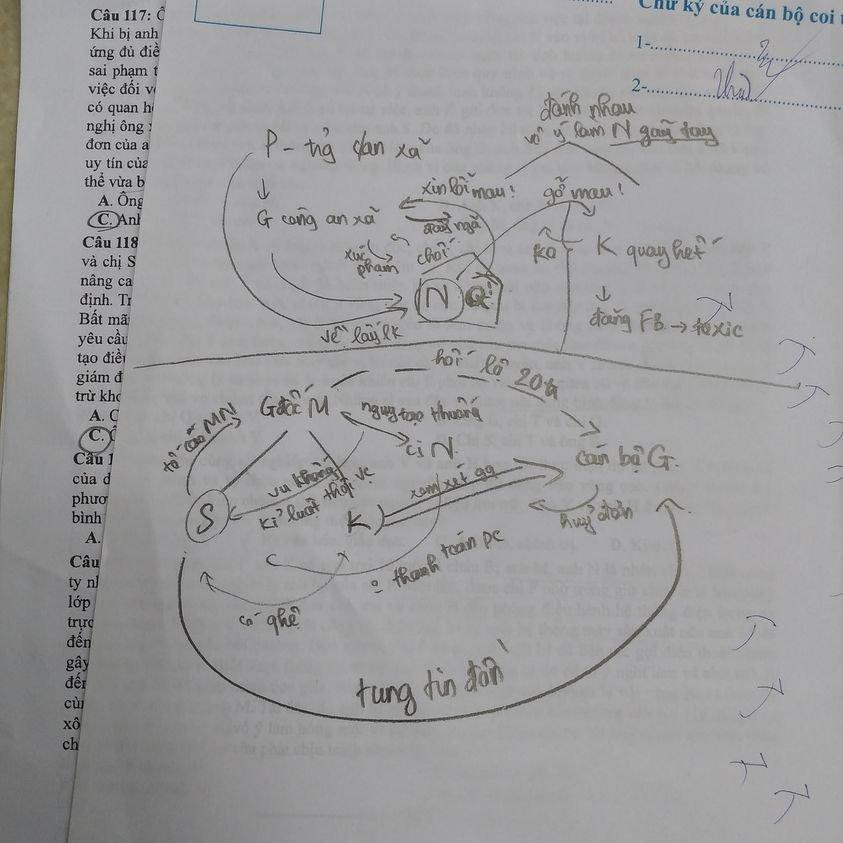 Câu 117:
Khi bị anh
ứng đủ điề
sai phạm t
việc đối v
có quan h
nghị ông
đơn của a
uy tín của
thể vừa b
A. Ông
C. Anh
Câu 118
và chị S
nâng ca
định. Tr
Bất mã
yêu cầu
tạo điều
giám đ
trừ khơ
A. C
C.
Câu 1
của d
phươ
bình
A.
Câu
ty nh
lớp
trực
đến
gây
đến
cùn
xô
ch
Chữ ký của cán bộ coi
1-
2-
đánh nhau
vô ý làm N gãy tay
P - tig dan xã
xin lỗi mau!
gỡ mau!
G công an xã
đẩy ngã
xúc phạm
chối
ko
K quay hết
N Q
đăng FB → toxic
về lấy lk
hối lộ 20tr
Gđốc M
nguỵ tạo thuống
tố cáo MN
cị N.
cán bộ G.
vu khống
kỉ luật thôi vc
xem xét gq
S
K
huỷ đơn
C
= thanh toán pc
có ghệ
tung tin đồn